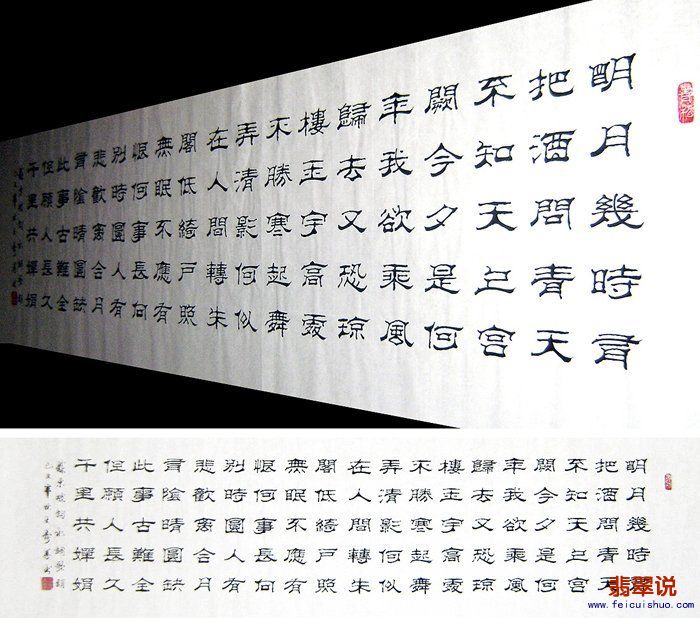 明月幾時有
把酒問青天
不知天上宮
闕今夕是何
年我欲乘風
歸去又恐瓊
樓玉宇高處
不勝寒起舞
弄清影何似
在人間轉朱
閣低綺戶照
無眠不應有
恨何事長向
別時圓人有
悲歡離合月
有陰晴圓缺
此事古難全
但願人長久
千里共嬋娟
明月幾時有
把酒問青天
不知天上宮
闕今夕是何
年我欲乘風
歸去又恐瓊
樓玉宇高處
不勝寒起舞
弄清影何似
在人間轉朱
閣低綺戶照
無眠不應有
恨何事長向
別時圓人有
悲歡離合月
有陰晴圓缺
此事古難全
但願人長久
千里共嬋娟
蘇東坡詞水調歌頭
翡翠说
www.feicuishuo.com